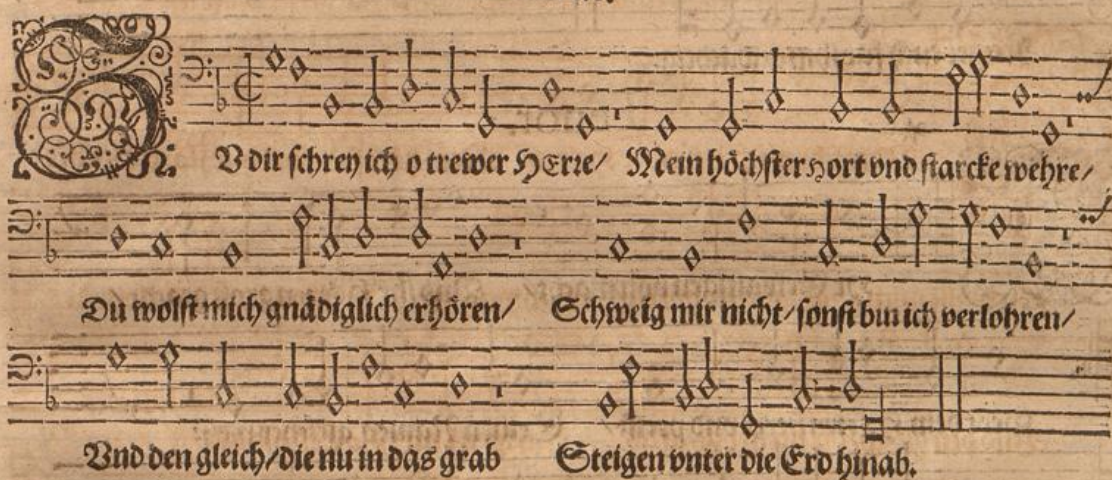 ZV dir schrey ich o trewer HErre/ Mein höchster hort vnd starcke wehre/
Du wolst mich gnädiglich erhören/ Schweig mir nicht/ sonst bin ich verlohren/
Vnd den gleich/ die nu in das grab Steigen vnter die Erd hinab.